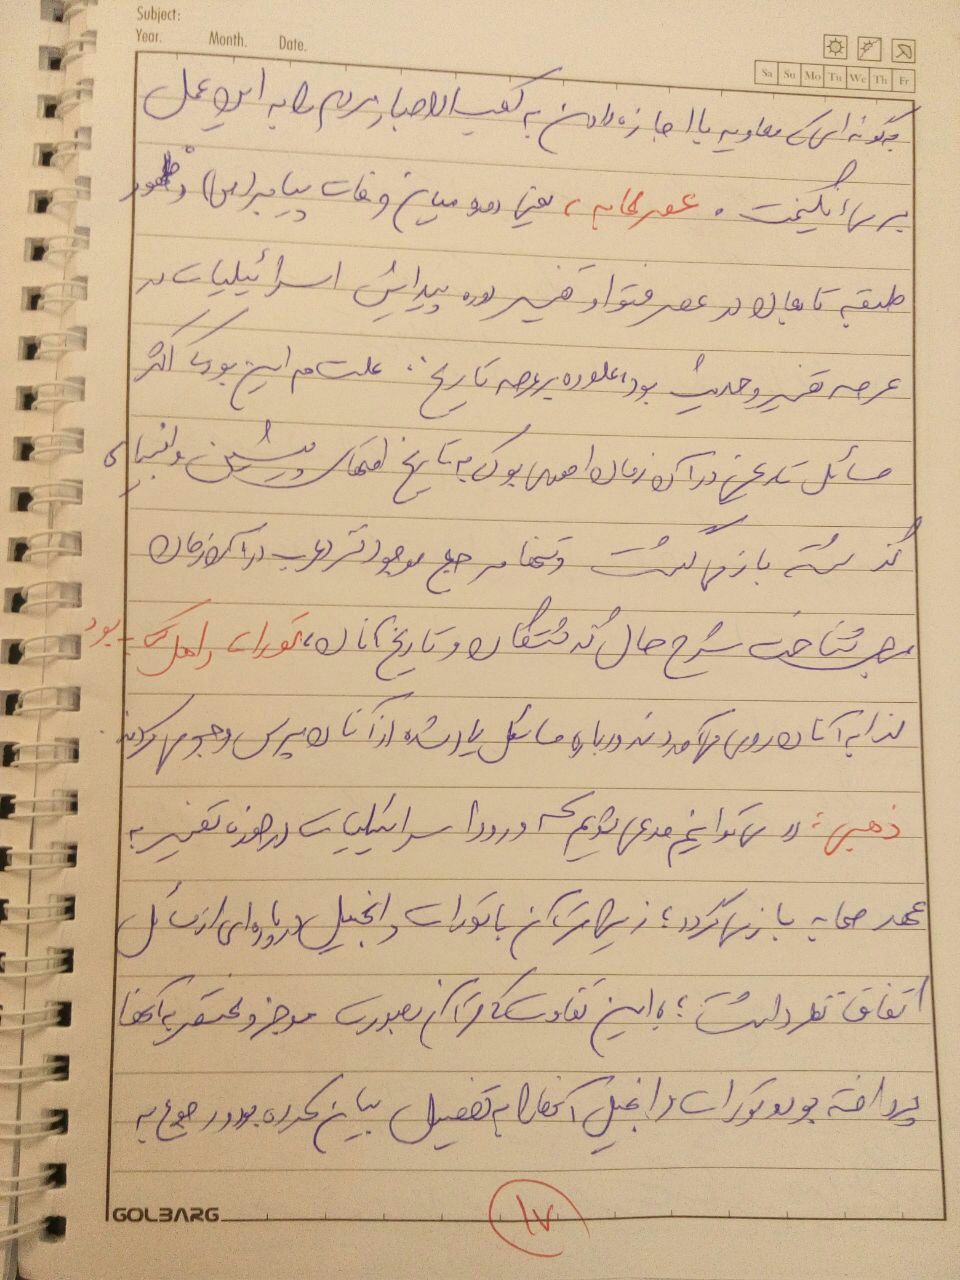 Subject:
Year. Month. Date.
Sa Su Mo Tu We Th Fr
به گونه ای که معاویه با اجازه دادن به کعب الاحبار مردم را به این عمل
برمی انگیخت. عصر صحابه، یعنی دوره میان وفات پیامبر(ص) و ظهور
طبقه تابعان در عصر فتوا و تفسیر دوره پیدایش اسرائیلیات در
عرصه تفسیر و حدیث بود، علاوه بر عرصه تاریخ؛ علت هم این بود که اکثر
مسائل تاریخی در آن زمان اموری بود که به تاریخ امتهای پیشین و انبیای
گذشته باز می گشت و تنها مرجع موجود نزد عرب در آن زمان
جهت شناخت شرح حال گذشتگان و تاریخ آنان، تورات و اهل کتاب بود
لذا به آنان روی می آوردند و درباره مسائل یاد شده از آنان پرس و جو می کردند.
ذهبی: می توانیم مدعی شویم که ورود اسرائیلیات در حوزه تفسیر به
عهد صحابه باز می گردد؛ زیرا قرآن با تورات و انجیل در پاره ای از مسائل
اتفاق نظر داشت؛ با این تفاوت که قرآن بصورت موجز و مختصر به آنها
پرداخته بود و تورات و انجیل آنها را به تفصیل بیان کرده بود و رجوع به
GOLBARG
۱۷